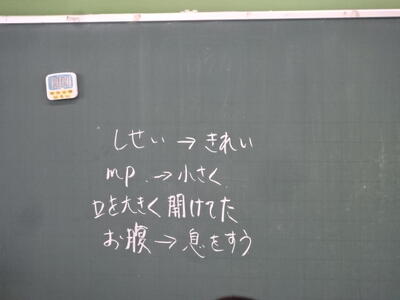 しせい→きれい
mp.→小さく
口を大きく開けてた
お腹→息をすう